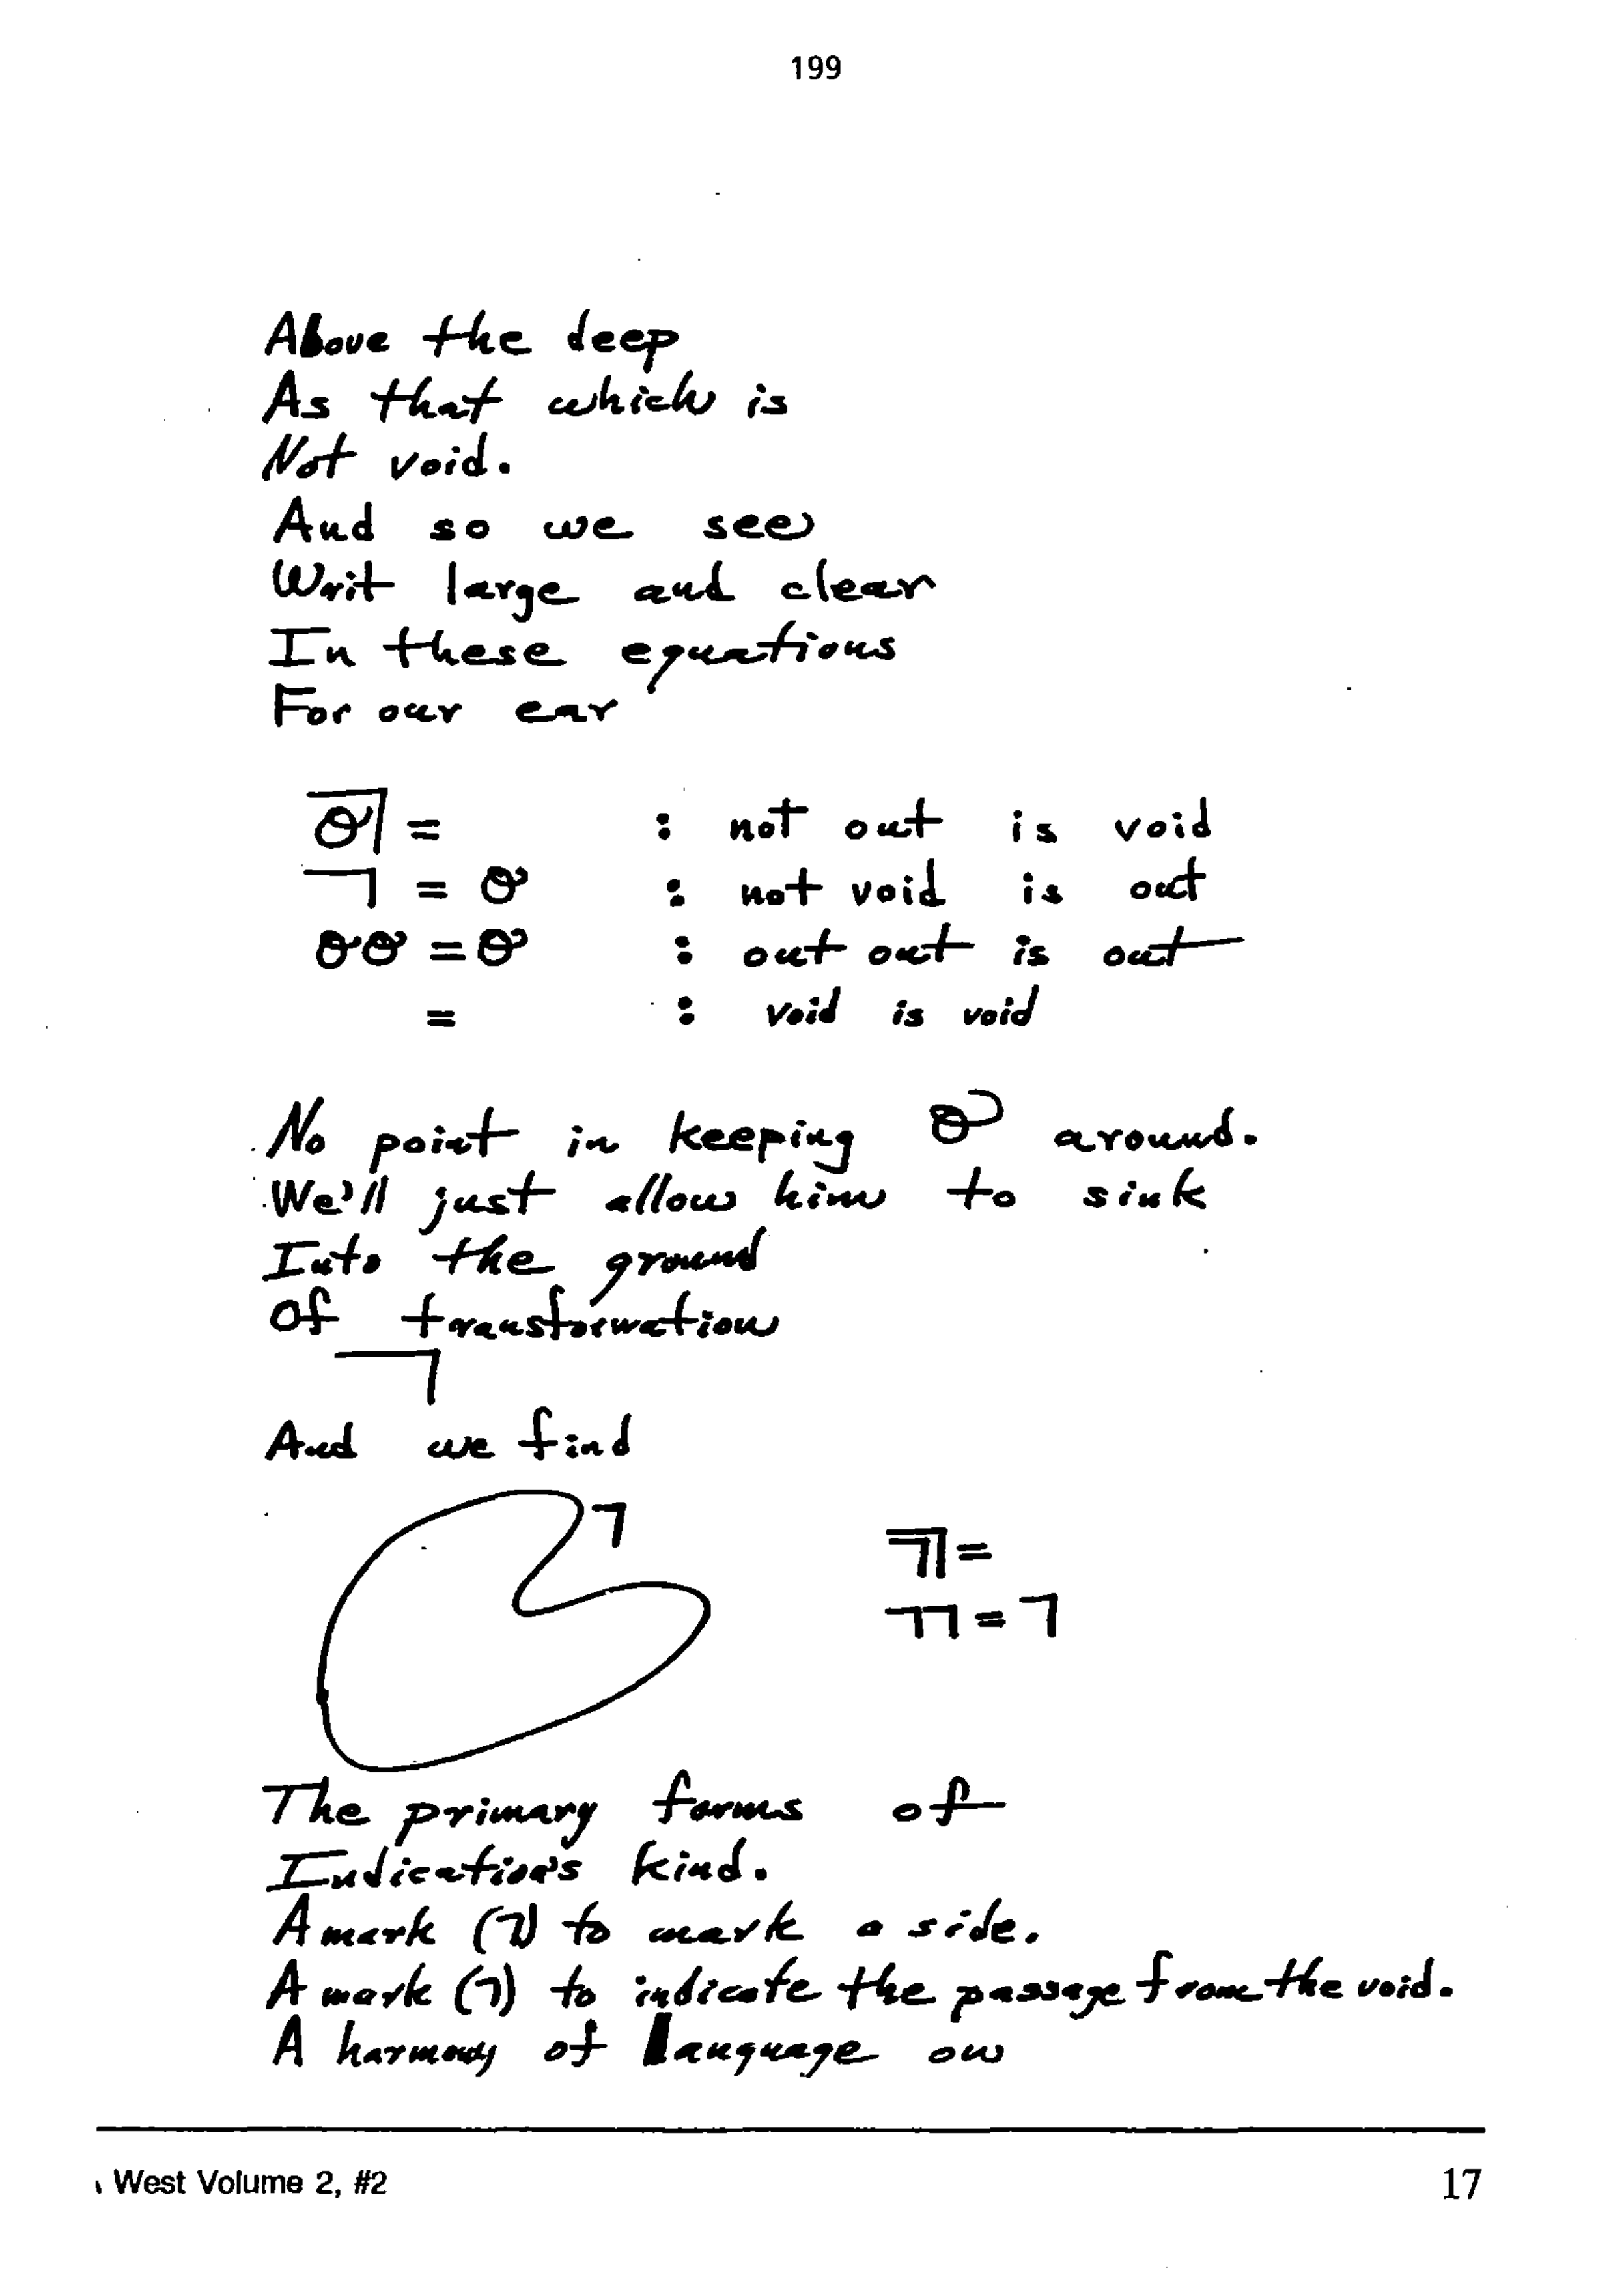 199
Above the deep
As that which is
Not void.
And so we see
Writ large and clear
In these equations
For our ear
=        : not out is void
=        : not void is out
=        : out out is out
=        : void is void
No point in keeping around.
We'll just allow him to sink
Into the ground
Of transformation
⌝
And we find
⌝
⌝⌝ =
⌝⌝ = ⌝
The primary forms of
Indication's kind.
A mark (⌝) to mark a side.
A mark (⌝) to indicate the passage from the void.
A harmony of language on
West Volume 2, #2
17